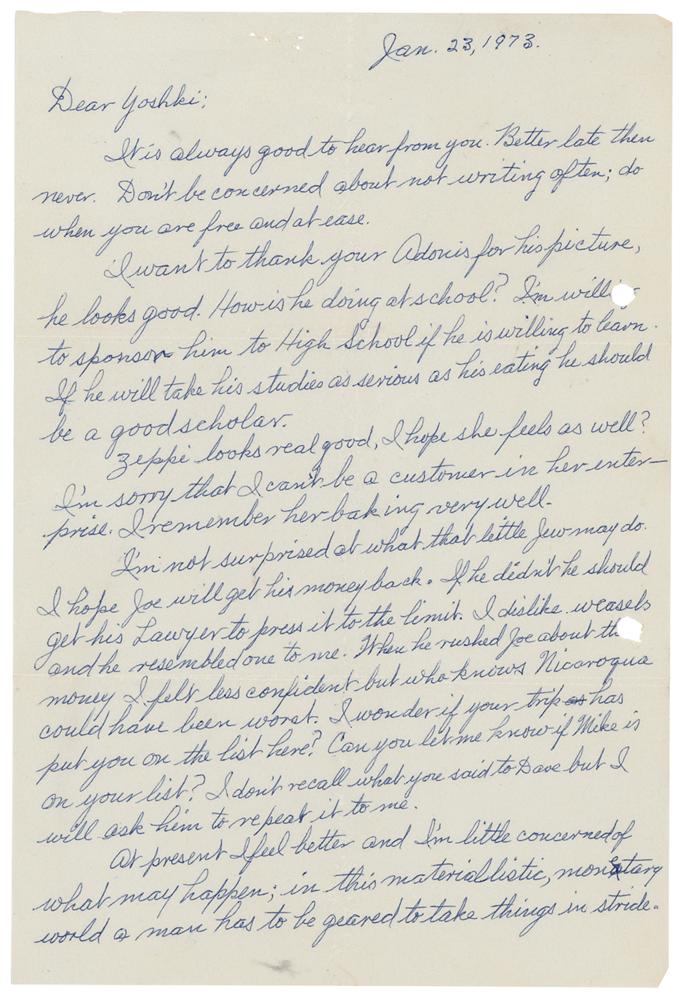 Jan. 23, 1973.
Dear Yoshki:
It is always good to hear from you. Better late then
never. Don't be concerned about not writing often; do
when you are free and at ease.
I want to thank your Adonis for his picture,
he looks good. How is he doing at school? I'm willing
to sponsor him to High School if he is willing to learn.
If he will take his studies as serious as his eating he should
be a good scholar.
Zeppi looks real good, I hope she feels as well?
I'm sorry that I can't be a customer in her enter-
prise. I remember her baking very well.
I'm not surprised at what that little Jew may do.
I hope Joe will get his money back. If he didn't he should
get his Lawyer to press it to the limit. I dislike weasels
and he resembled one to me. When he rushed Joe about the
money I felt less confident but who knows Nicaroqua
could have been worst. I wonder if your trip has
put you on the list here? Can you let me know if Mike is
on your list? I don't recall what you said to Dave but I
will ask him to repeat it to me.
At present I feel better and I'm little concerned of
what may happen; in this materiallistic, monatary
world a man has to be geared to take things in stride.